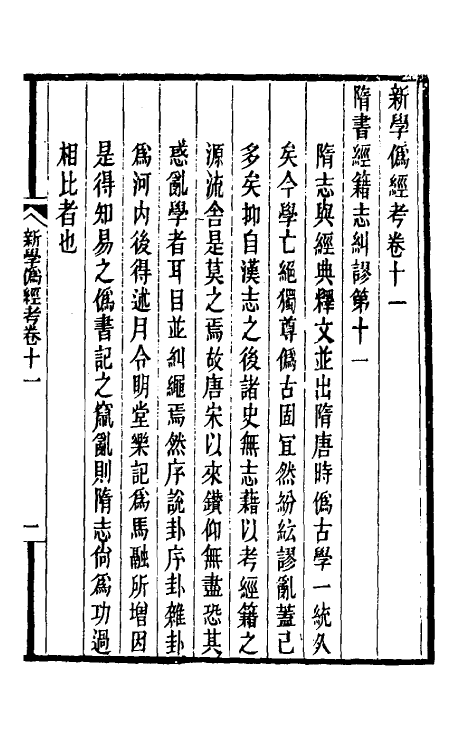 新學僞經考卷十一
隋書經籍志糾謬第十一
隋志與經典釋文並出隋唐時僞古學一統久
矣今學亡絕獨尊僞古固宜然紛紜謬亂蓋已
多矣抑自漢志之後諸史無志藉以考經籍之
源流舍是莫之焉故唐宋以來鑽仰無盡恐其
惑亂學者耳目並糾繩焉然序說卦序卦雜卦
爲河內後得述月令明堂樂記爲馬融所增因
是得知易之僞書記之竄亂則隋志尙爲功過
相比者也
新學僞經考卷十一
一